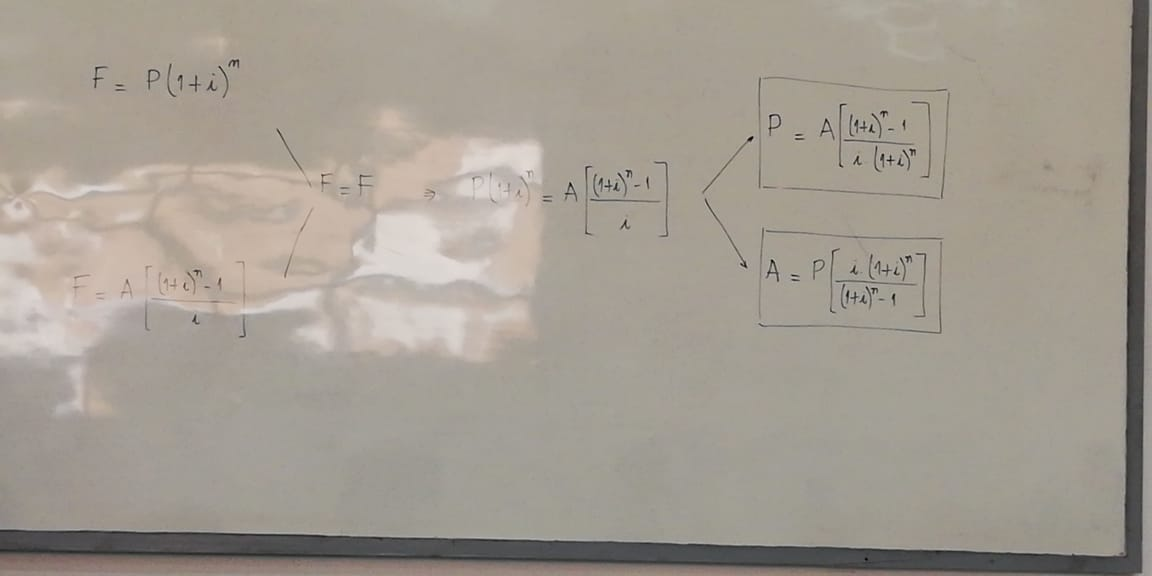 F = P(1+i)^n
F = A[((1+i)^n - 1) / i]
F = F ⇒ P(1+i)^n = A[((1+i)^n - 1) / i]
P = A[((1+i)^n - 1) / (i (1+i)^n)]
A = P[(i.(1+i)^n) / ((1+i)^n - 1)]